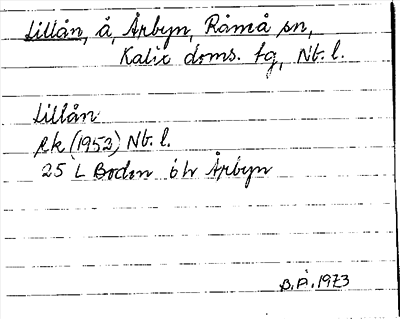 Lillån, å, Årbyn, Råneå sn,
Kalix doms. fg, Nt. l.
Lillån
Rk (1953) Nt. l.
25 L Boden ö hr Årbyn
B.Å. 1973